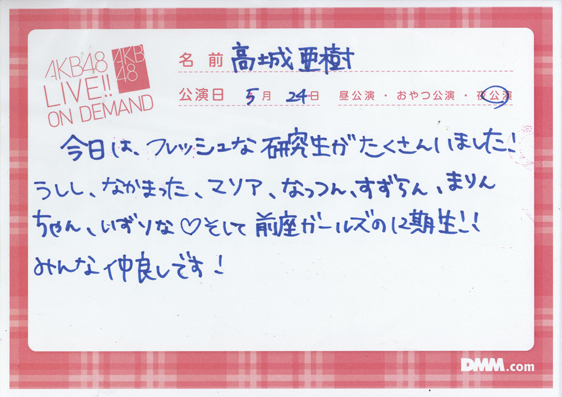 AKB48
LIVE!!
ON DEMAND
AKB
48
名前 高城亜樹
公演日 5月 24日 昼公演・おやつ公演・夜公演
今日は、フレッシュな研究生がたくさんいました!
うししし、なかまった、マソア、なっつん、すずらん、まりん
ちゃん、いずりな♡そして前座ガールズの12期生!!
みんな仲良しです!
DMM.com